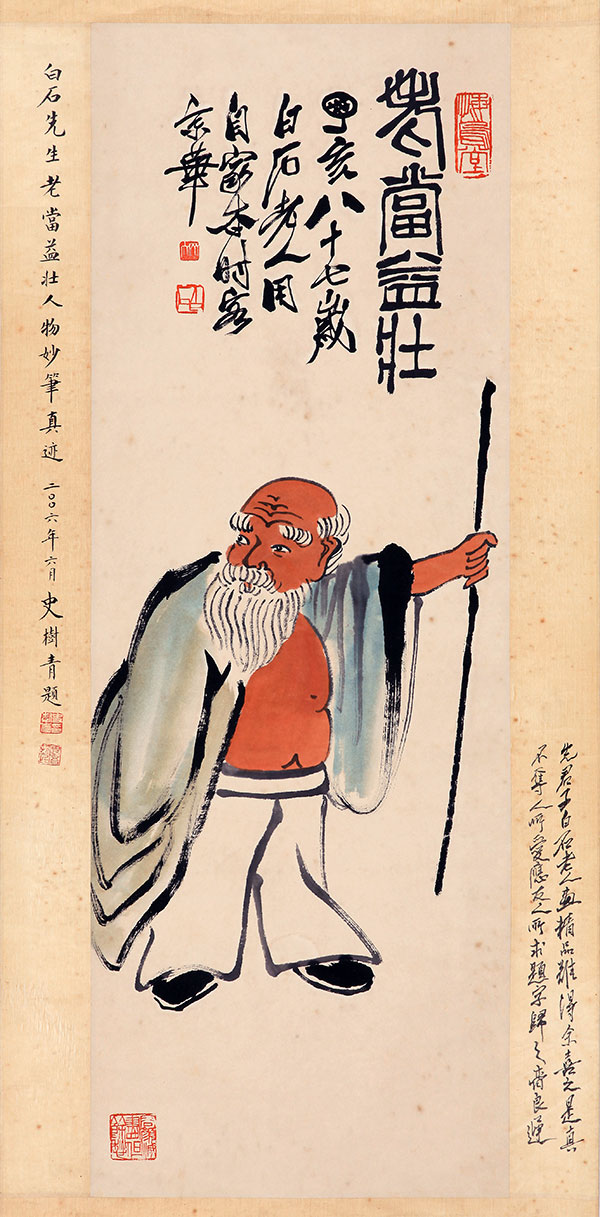 老當益壯
丁亥八十七歲
白石老人用
自家本時客
京華
悔烏堂
白石先生老當益壯人物妙筆真迹 二〇〇六年六月 史樹青題
先君子白石老人畫精品難得余喜之是真
不奪人所愛應友人所求題字歸之齊良遲